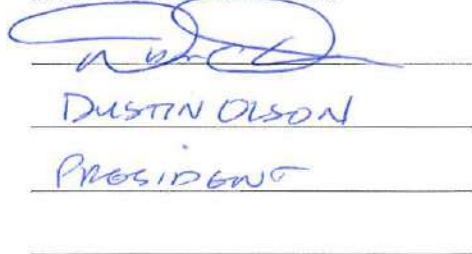 DUSTIN OLSON
PRESIDENT